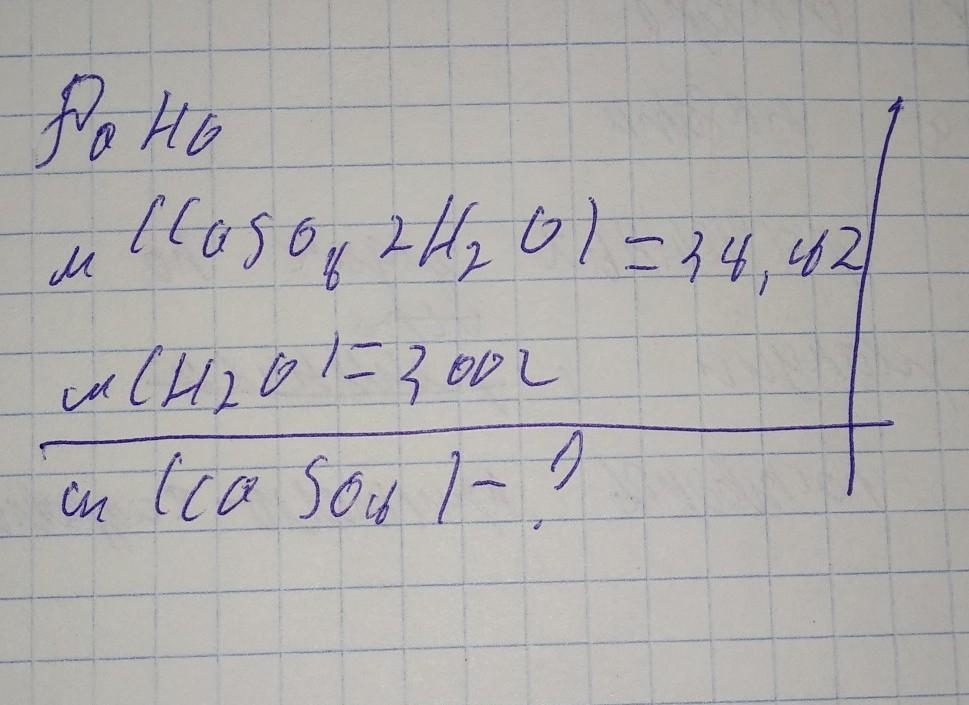 Дано
м (CaSO4 2H2O) = 34,4г
м (H2O) = 300г
м (CaSO4) - ?